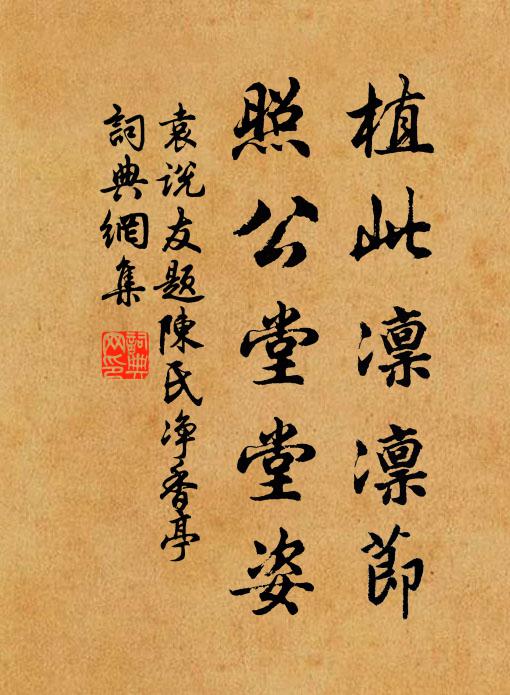 植此凛凛節
照公堂堂姿
袁説友題陳氏净香亭
詞典網集
詞典
网印